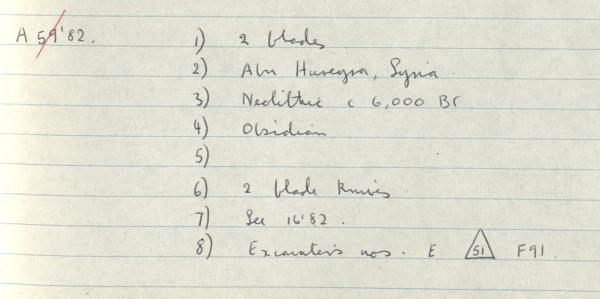 A 59'82. 1) 2 blades
2) Abu Hureyra, Syria.
3) Neolithic c 6,000 BC
4) Obsidian
5)
6) 2 blade knives
7) See 16'82.
8) Excavator's nos. E 51 F91.